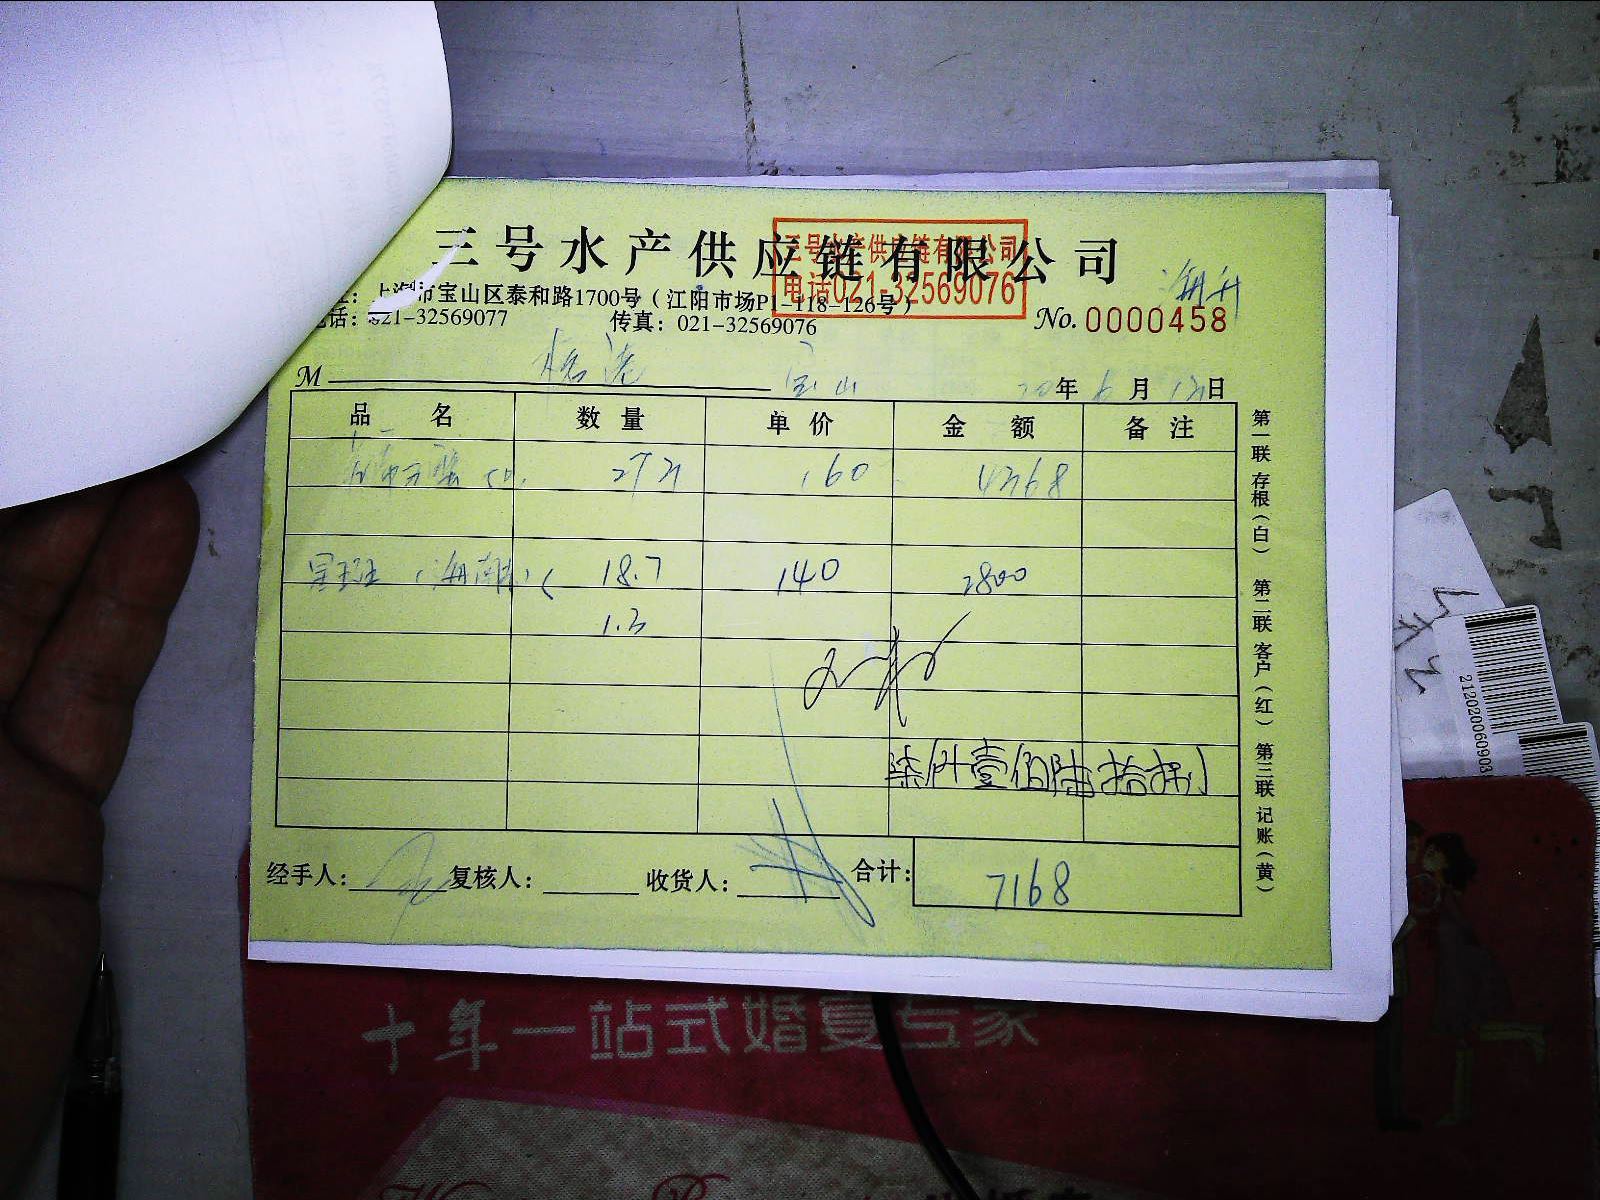 三号水产供应链有限公司
三号水产供应链有限公司
电话021-32569076
上海市宝山区泰和路1700号（江阳市场P1-118-126号）
电话：021-32569077 传真：021-32569076
No. 0000458
M 宝山 20年6月13日
品名 数量 单价 金额 备注
160 4368
18.7 140 2800
1.3
柒仟壹佰陆拾捌
经手人： 复核人： 收货人： 合计： 7168
第一联 存根（白） 第二联 客户（红） 第三联 记账（黄）
十年一站式婚宴专家